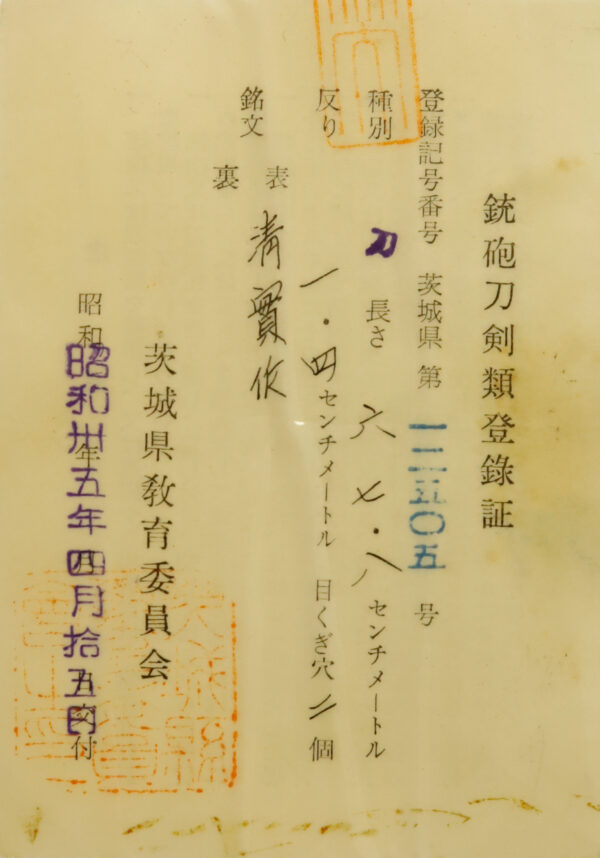 銃砲刀剣類登録証
登録記号番号 茨城県 第 一二五〇五 号
種別 刀 長さ 六七・八 センチメートル
反り 一・四 センチメートル 目くぎ穴 二 個
銘文 表 清實作
裏
茨城県教育委員会
昭和 昭和卅五年四月拾五日 交付